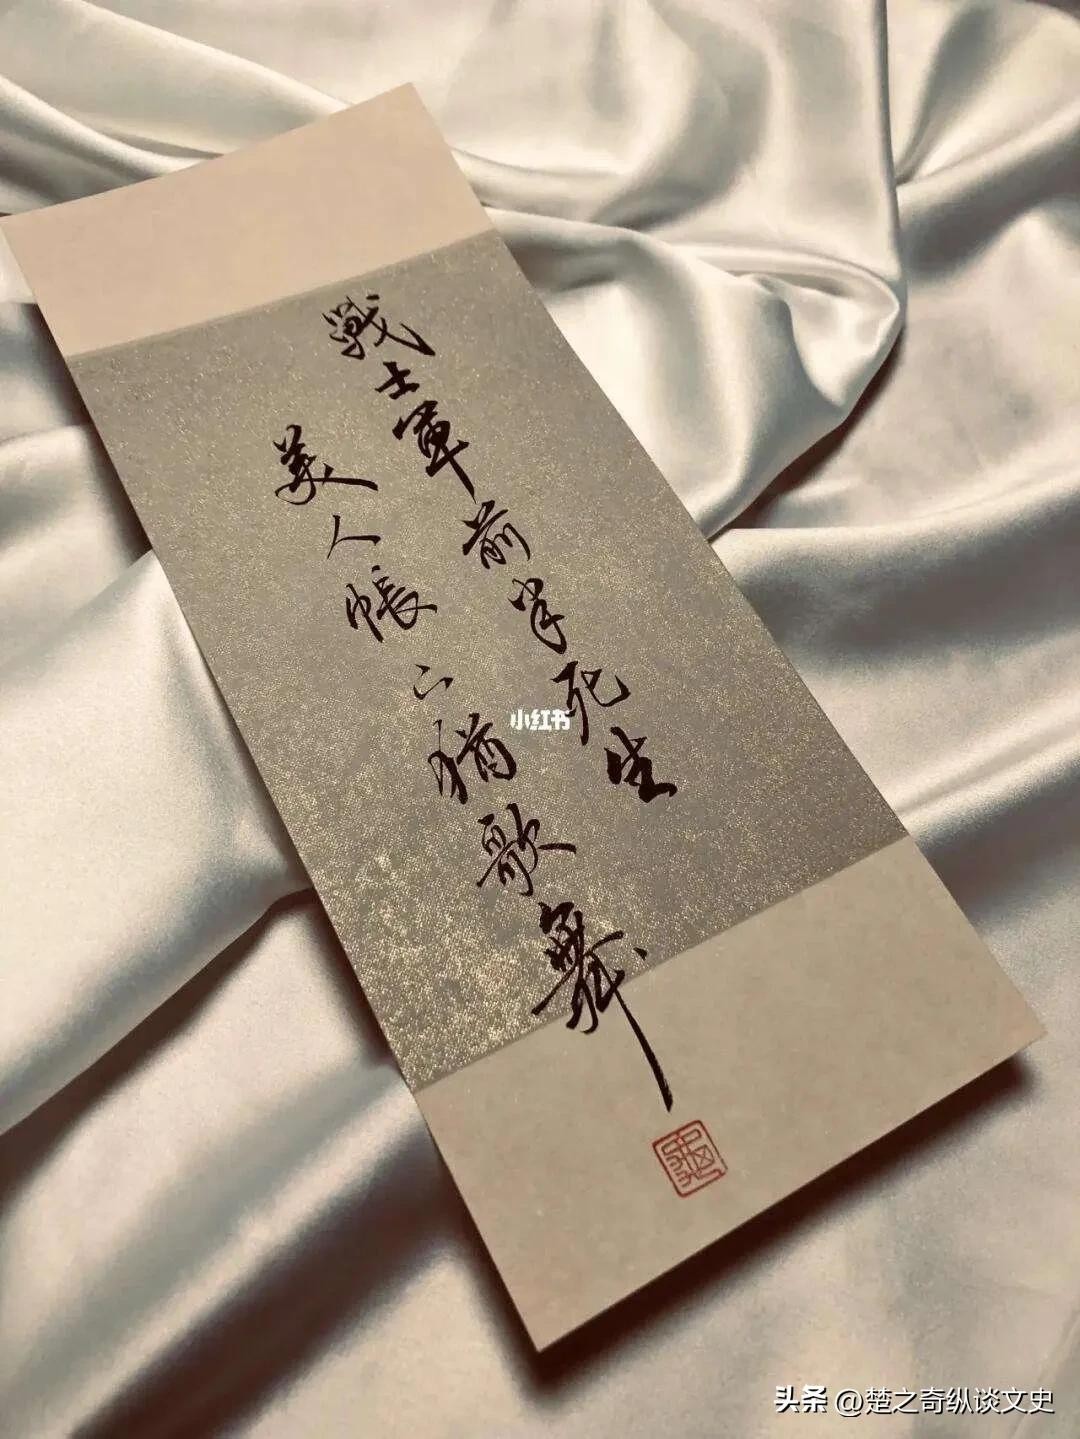 戰士軍前半死生
美人帳下猶歌舞
小红书
头条 @楚之奇纵谈文史